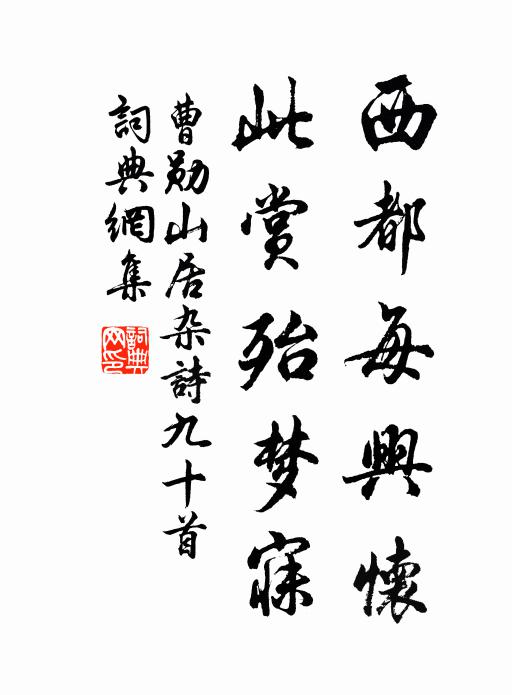 西都每興懷
此賞殆梦寐
曹勋山居杂詩九十首
詞典網集
詞典网印